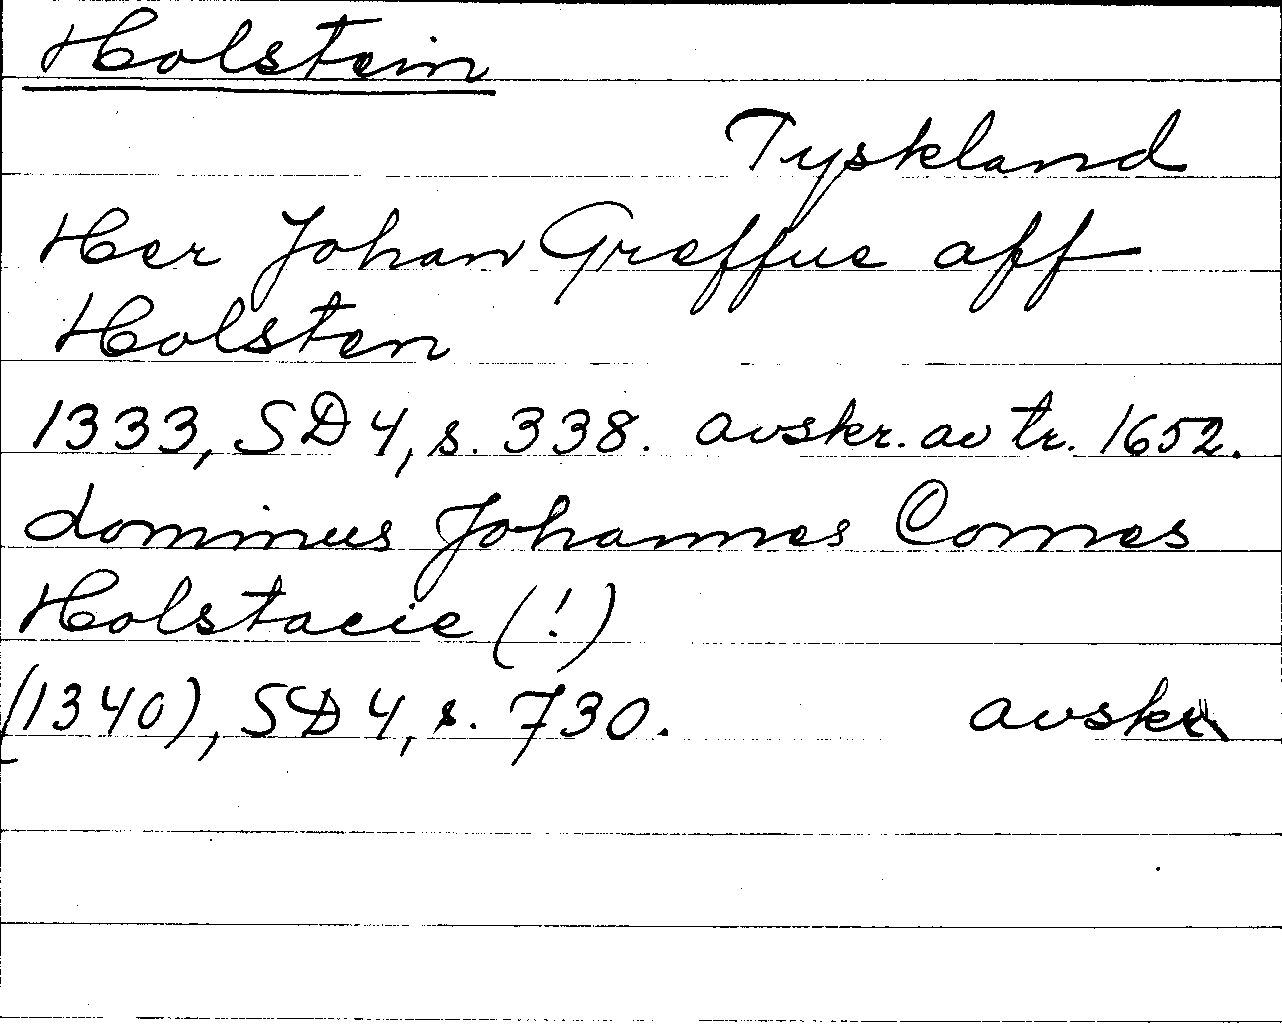 Holstein
Tyskland
Her Johan Greffue aff
Holsten
1333, SD 4, s. 338. avskr. av tr. 1652.
dominus Johannes Comes
Holstacie (!)
(1340), SD 4, s. 730. avskr.